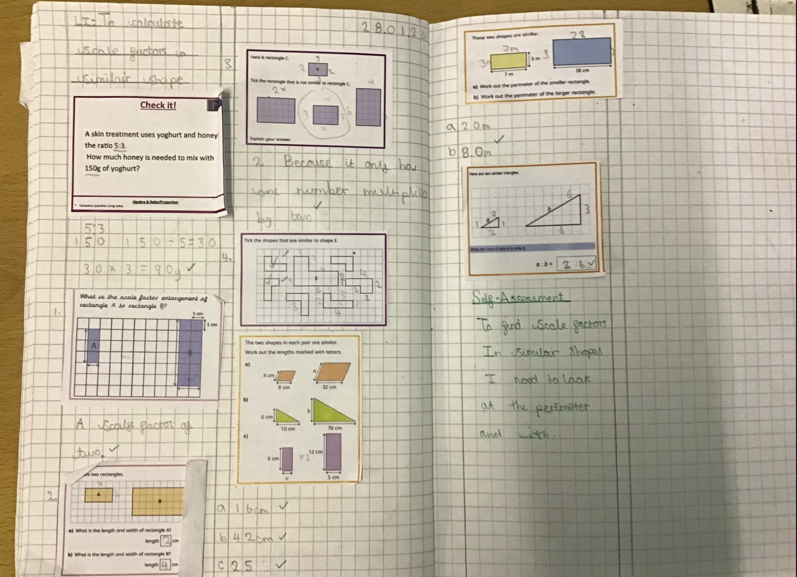 LI: To calculate
scale factors in
similair shape
28.01.2
Check it!
A skin treatment uses yoghurt and honey
the ratio 5:3.
How much honey is needed to mix with
150g of yoghurt?
Algebra & Ratio/Proportion
5:3
150 150 ÷ 5 = 30
30 x 3 = 90g ✓
1.
What is the scale factor enlargement of
rectangle A to rectangle B?
1 cm
1 cm
A
B
A scale factor of
two. ✓
2.
two rectangles.
A
B
a) What is the length and width of rectangle A?
length 2 cm
b) What is the length and width of rectangle B?
length 4 cm
3.
Here is rectangle C.
Tick the rectangle that is not similar to rectangle C.
Explain your answer.
2. Because it only has
one number multiplied
by two ✓
4.
Tick the shapes that are similar to shape E.
The two shapes in each pair are similar.
Work out the lengths marked with letters.
a)
4 cm
8 cm
32 cm
b)
6 cm
10 cm
70 cm
c)
6 cm
12 cm
c
5 cm
a 16cm ✓
b 42cm ✓
c 25 ✓
These two shapes are similar.
28
7m
3m
3 m
7 m
28 cm
a) Work out the perimeter of the smaller rectangle.
b) Work out the perimeter of the larger rectangle.
a 20m
b 80m ✓
Here are two similar triangles.
2
6
1
1
3
2
6
a : b = 2:6 ✓
Self-Assessment
To find scale factors
In similar shapes
I need to look
at the perimiter
and